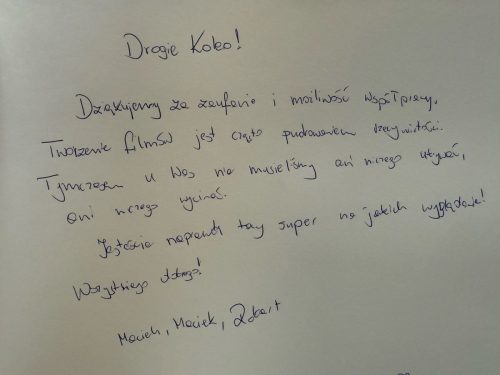 Drogie Koleo!
Dziękujemy za zaufanie i możliwość współpracy.
Tworzenie filmów jest często pudrowaniem rzeczywistości.
Tymczasem u Was nie musieliśmy ani niczego ukrywać,
ani niczego wycinać.
Jesteście naprawdę tacy super na jakich wyglądacie!
Wszystkiego dobrego!
Maciek, Maciek, Robert